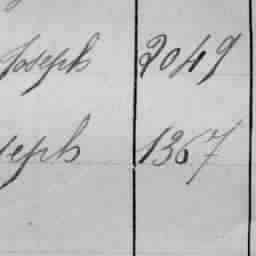 Joseph 2049
seph 1367